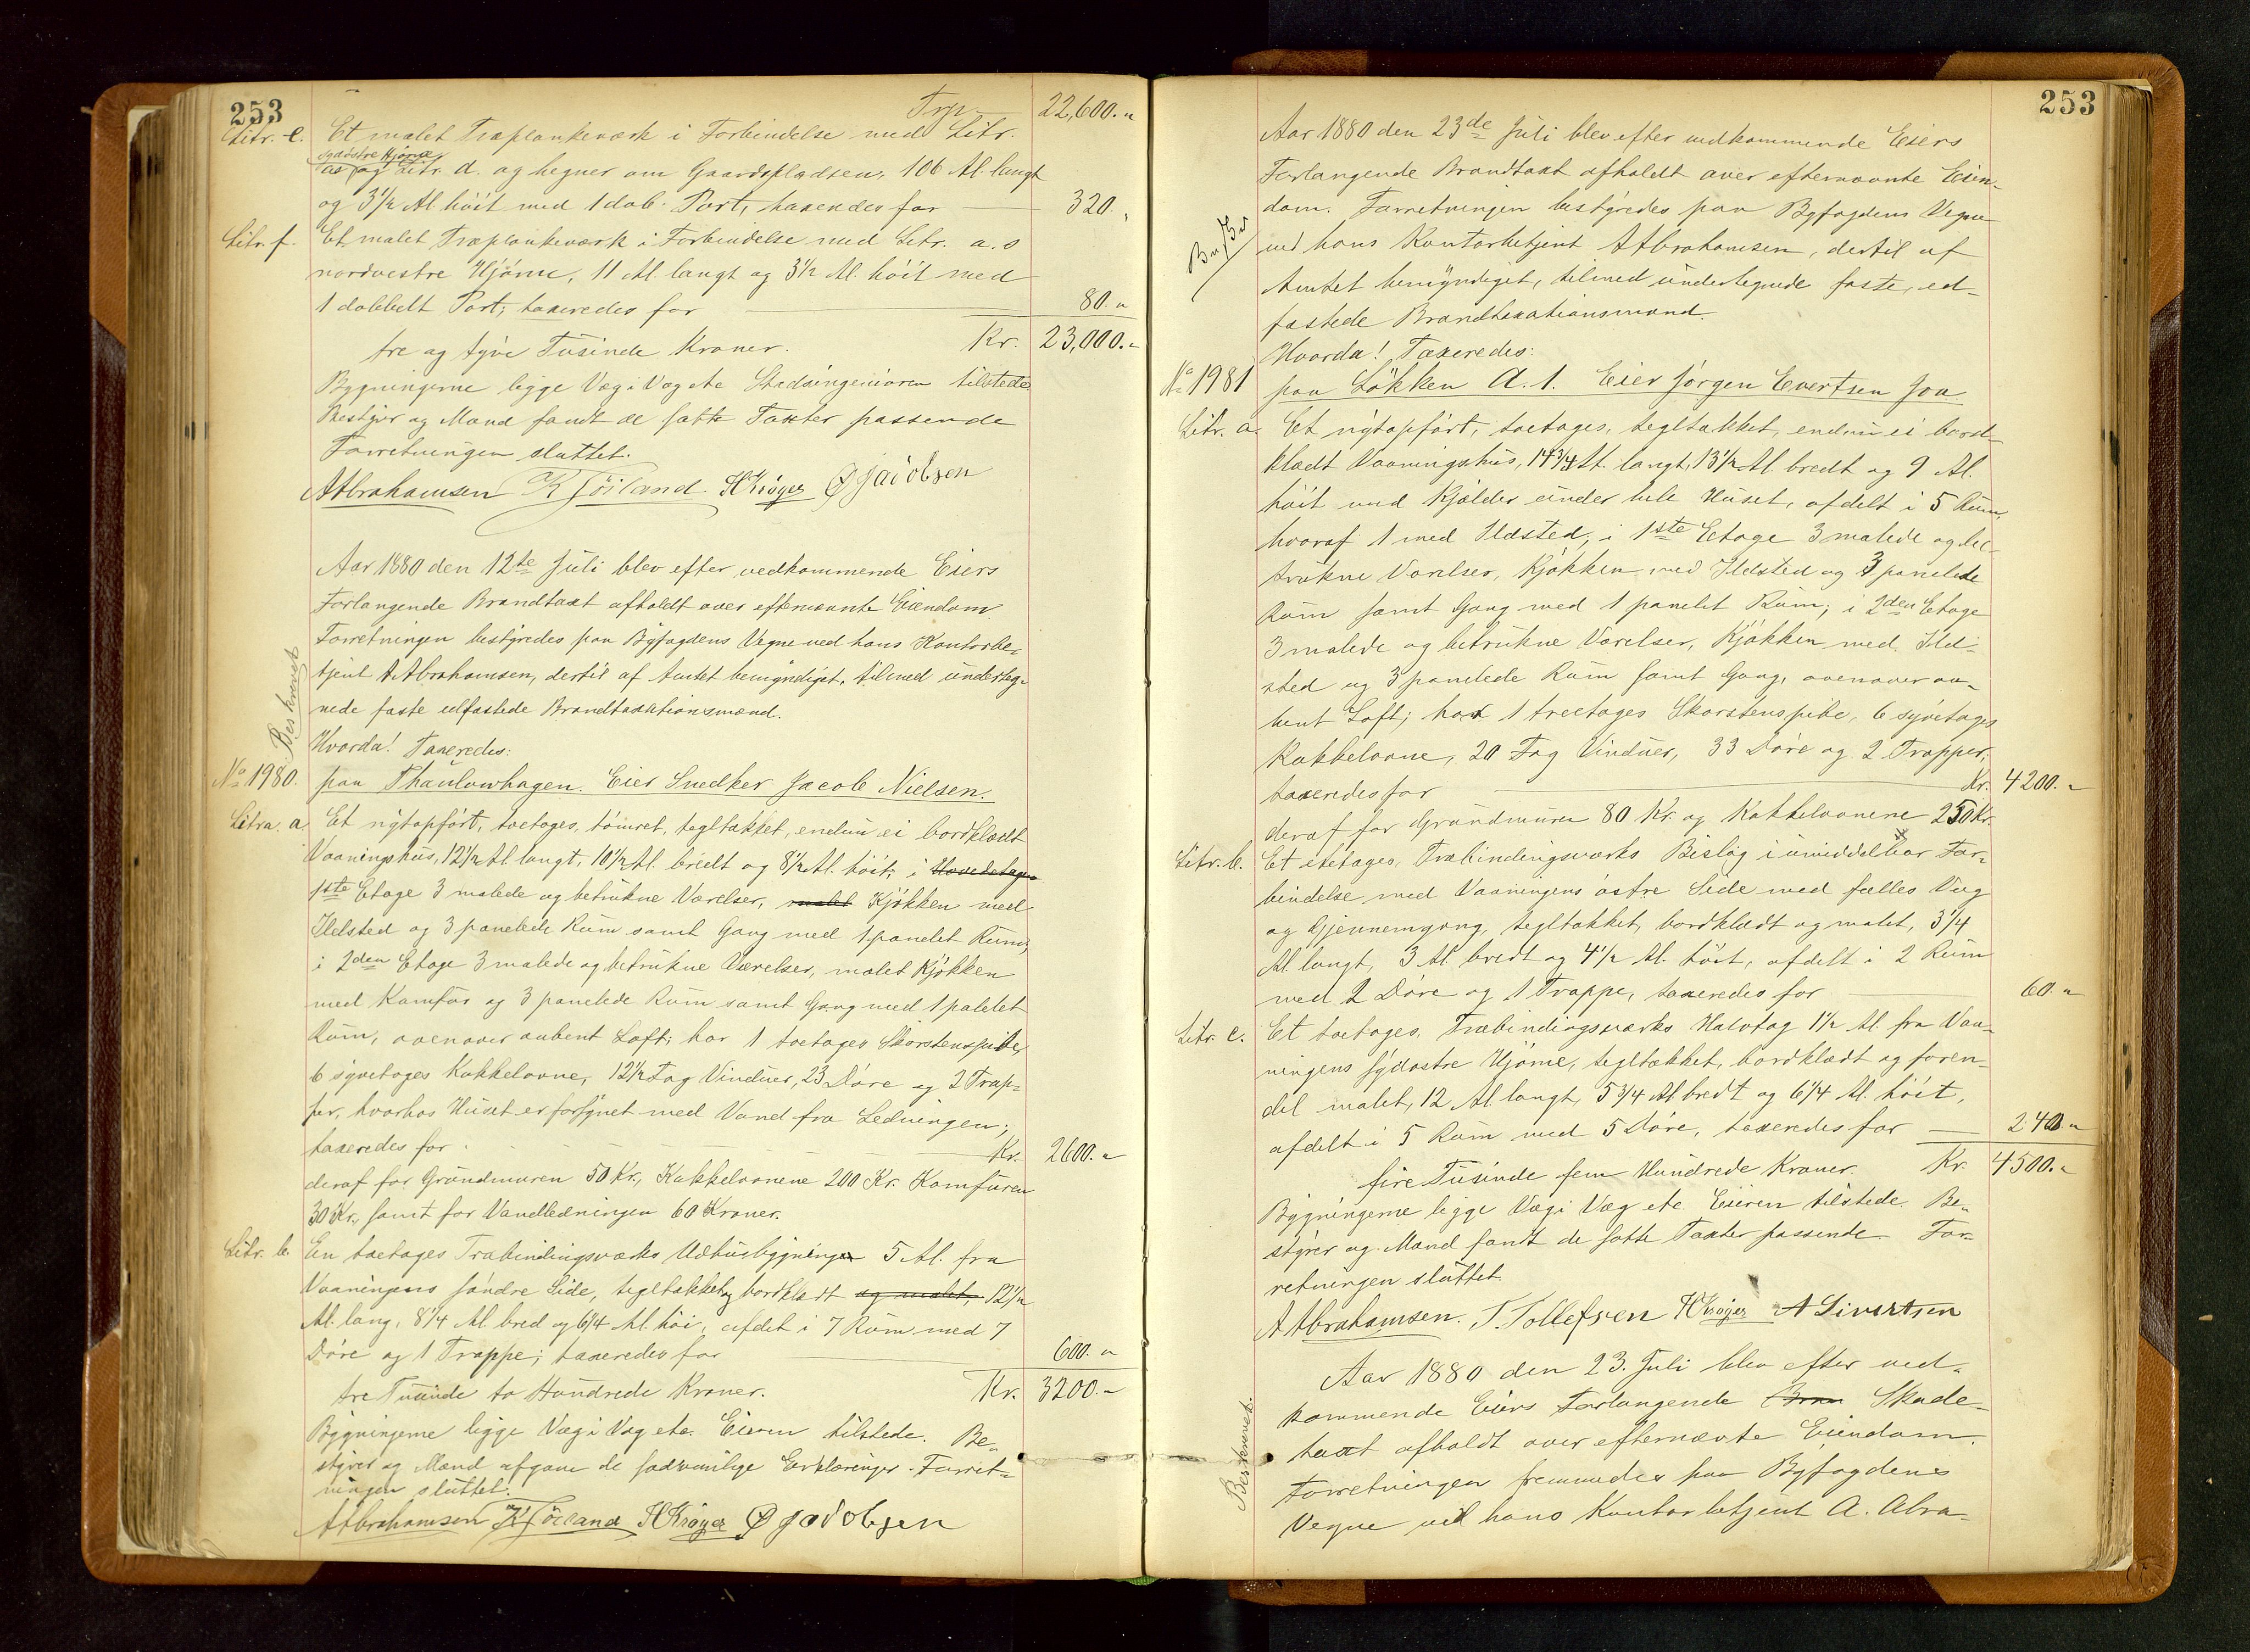 253
Trp. 22,600.-
Litr. e. Et malet Træplankeværk i Forbindelse med Litr.
sydöstre Hjörne
a.s og Litr. d. og hegner om Gaardspladsen, 106 Al. langt
og 3 1/2 Al. höit med 1 dob. Port, taxeredes for 320.-
Litr. f. Et malet Træplankeværk i Forbindelse med Litr. a.s
nordvestre Hjörne, 11 Al. langt og 3 1/2 Al. höit med
1 dobbelt Port; taxeredes for 80.-
tre og tyve Tusinde Kroner. Kr. 23,000.-
Bygningerne ligge Væg i Væg etc Stadsingeniören tilstede
Bestyrer og Mænd fandt de satte Taxter passende
Forretningen sluttet.
AAbrahamsen K Joiland. HKröger Ø Jacobsen
Aar 1880 den 12te Juli blev efter vedkommende Eiers
Forlangende Brandtaxt afholdt over efternævnte Eiendom.
Forretningen bestyredes paa Byfogdens Vegne ved hans Kontorbe-
tjent A Abrahamsen, dertil af Amtet bemyndiget, tilmed underteg-
nede faste edfæstede Brandtaxationsmænd.
Beskrevet
Hvorda! Taxeredes:
No 1980. paa Thaulowhagen. Eier Snedker Jacob Nielsen.
Litra. a. Et nyt opfört, toetages, tömret, tegltækket, endnu ei bordklædt
Vaaningshus, 12 1/2 Al. langt, 10 1/2 Al. bredt og 8 1/2 Al. höit; i Hovedetagen
1ste Etage 3 malede og betrukne Værelser, malet Kjökken med
Ildsted og 3 panelede Rum samt Gang med 1 panelet Rum;
i 2den Etage 3 malede og betrukne Værelser, malet Kjökken
med Komfur og 3 panelede Rum samt Gang med 1 palelet
Rum, ovenover aabent Loft; har 1 toetages Skorstenspibe,
6 syvetages Kakkelovne, 12 1/2 Fag Vinduer, 23 Döre og 2 Trap-
per, hvorhos Huset er forsynet med Vand fra Ledningen;
taxeredes for Kr. 2600.-
deraf for Grundmuren 50 Kr., Kakkelovnene 200 Kr. Komfuren
30 Kr., samt for Vandledningen 60 Kroner.
Litr. b. En toetages Træbindingsværks Udhusbygning 5 Al. fra
Vaaningens söndre Side, tegltækket og bordklædt og malet, 12 1/2
Al. lang, 8 1/4 Al. bred og 6 1/4 Al. höi, afdelt i 7 Rum med 7
Döre og 1 Trappe; taxeredes for 600.-
tre Tusinde to Hundrede Kroner. Kr. 3200.-
Bygningerne ligge Væg i Væg etc. Eieren tilstede. Be-
styrer og Mænd afgave de sædvanlige Erklæringer. Forret-
ningen sluttet.
AAbrahamsen K Joiland HKröger Ø Jacobsen
253
Aar 1880 den 23de Juli blev efter vedkommende Eiers
Forlangende Brandtaxt afholdt over efternævnte Eien-
dom. Forretningen bestyredes paa Byfogdens Vegne
ved hans Kontorbetjent AAbrahamsen, dertil af
Amtet bemyndiget, tilmed undertegnede faste, ed-
fæstede Brandtaxationsmænd.
Hvorda! Taxeredes:
No 1981 paa Lökken A. 1. Eier Jörgen Evertsen Joa
Litr. a. Et nytopfört, toetages, tegltækket, endnu ei bord-
klædt Vaaningshus, 14 3/4 Al. langt, 13 1/2 Al. bredt og 9 Al.
höit med Kjælder under hele Huset, afdelt i 5 Rum,
hvoraf 1 med Ildsted; i 1ste Etage 3 malede og be-
trukne Værelser, Kjökken med Ildsted og 3 panelede
Rum samt Gang med 1 panelet Rum; i 2den Etage
3 malede og betrukne Værelser, Kjökken med Ild-
sted og 3 panelede Rum samt Gang, ovenover aa-
bent Loft; har 1 treetages Skorstenspibe, 6 syvetages
Kakkelovne, 20 Fag Vinduer, 33 Döre og 2 Trapper;
taxeredes for Kr. 4200.-
deraf for Grundmuren 80 Kr. og Kakkelovnene 250 Kr.
Litr. b. Et etetages, Træbindingsværks Bislag i umiddelbar For-
bindelse med Vaaningens östre Side med fælles Væg
og Gjennemgang, tegltækket, bordklædt og malet, 3 1/4
Al. langt, 3 Al. bredt og 4 1/2 Al. höit, afdelt i 2 Rum
med 2 Döre og 1 Trappe, taxeredes for 60.-
Litr. c. Et toetages, Træbindingsværks Halvtag 1 1/2 Al. fra Vaa-
ningens sydöstre Hjörne, tegltækket, bordklædt og foren-
del malet, 12 Al. langt, 5 3/4 Al. bredt og 6 1/4 Al. höit,
afdelt i 5 Rum med 5 Döre, taxeredes for 240.-
fire Tusinde fem Hundrede Kroner. Kr. 4500.-
Bygningerne ligge Væg i Væg etc Eieren tilstede. Be-
styrer og Mænd fandt de satte Taxter passende. For-
retningen sluttet.
AAbrahamsen. T. Tollefsen HKröger A Sivertsen
Beskrevet.
Aar 1880 den 23. Juli blev efter ved-
kommende Eiers Forlangende Bran Skade-
taxt afholdt over efternævnte Eiendom.
Forretningen fremmedes paa Byfogdens
Vegne ved hans Kontorbetjent A. Abra-